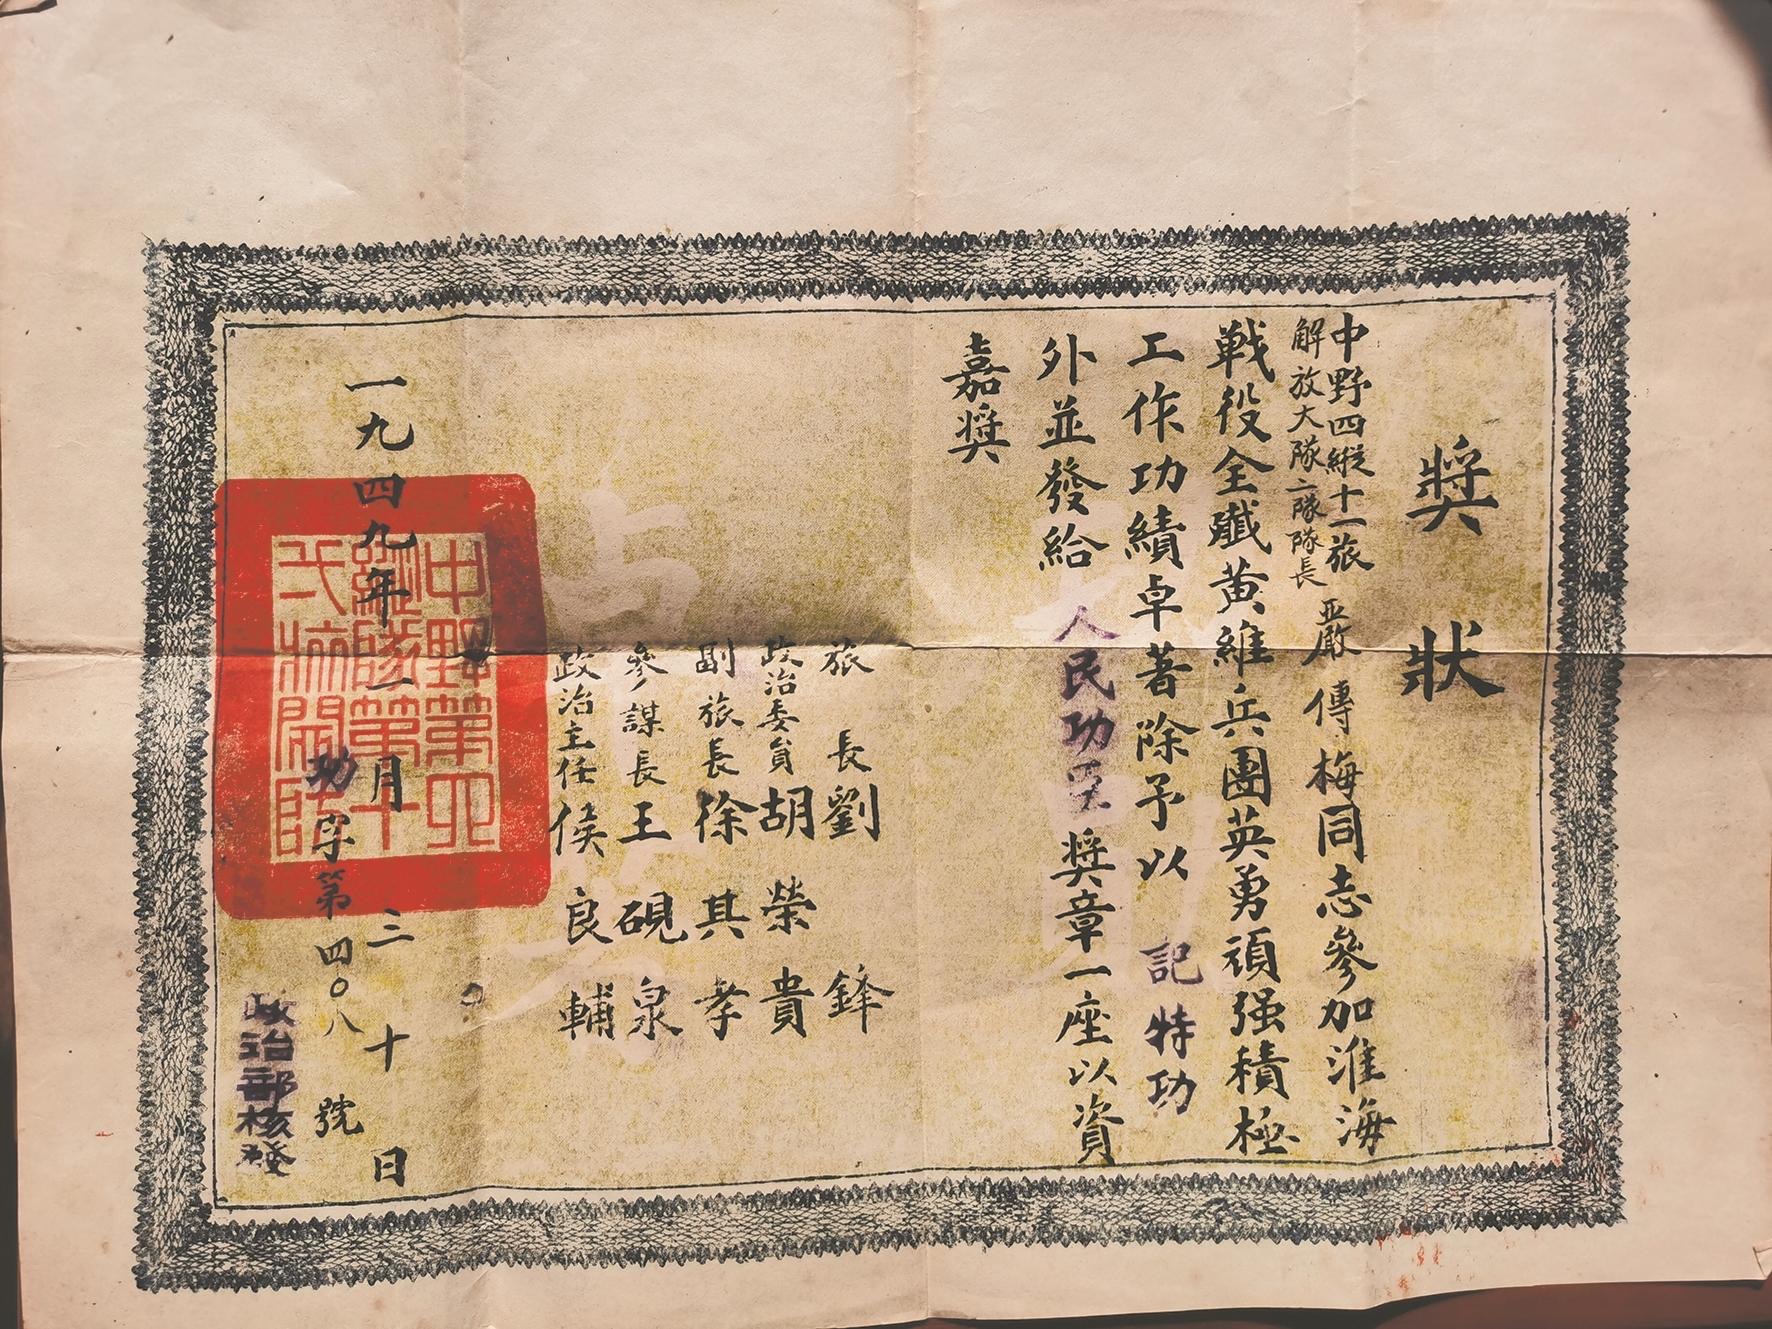 獎狀
中野四縱十一旅
解放大隊二隊隊長
嚴傳梅同志參加淮海
戰役全殲黃維兵團英勇頑强積極
工作功績卓著除予以記特功
外並發給人民功臣獎章一座以資
嘉獎
旅長劉鋒
政治委員胡榮貴
副旅長徐其孝
參謀長王硯泉
政治主任侯良輔
一九四九年一月三十日
功字第四〇八號
政治部核發
中野第四
縱隊第十
一旅關防